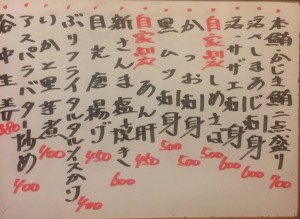 本鮪かじき鮪二点盛り 700
活〆しまあじ刺身 600
活サザエ刺身 500
自家製〆めさば 500
かつお刺身 600
黒ムツ刺身 500
自家製あん肝 500
新さんま塩焼き 600
目光唐揚げ 450
ぶりフライタルタルソースかけ 400
いかと里芋煮 400
アスパラバター炒め 400
谷中生姜 380